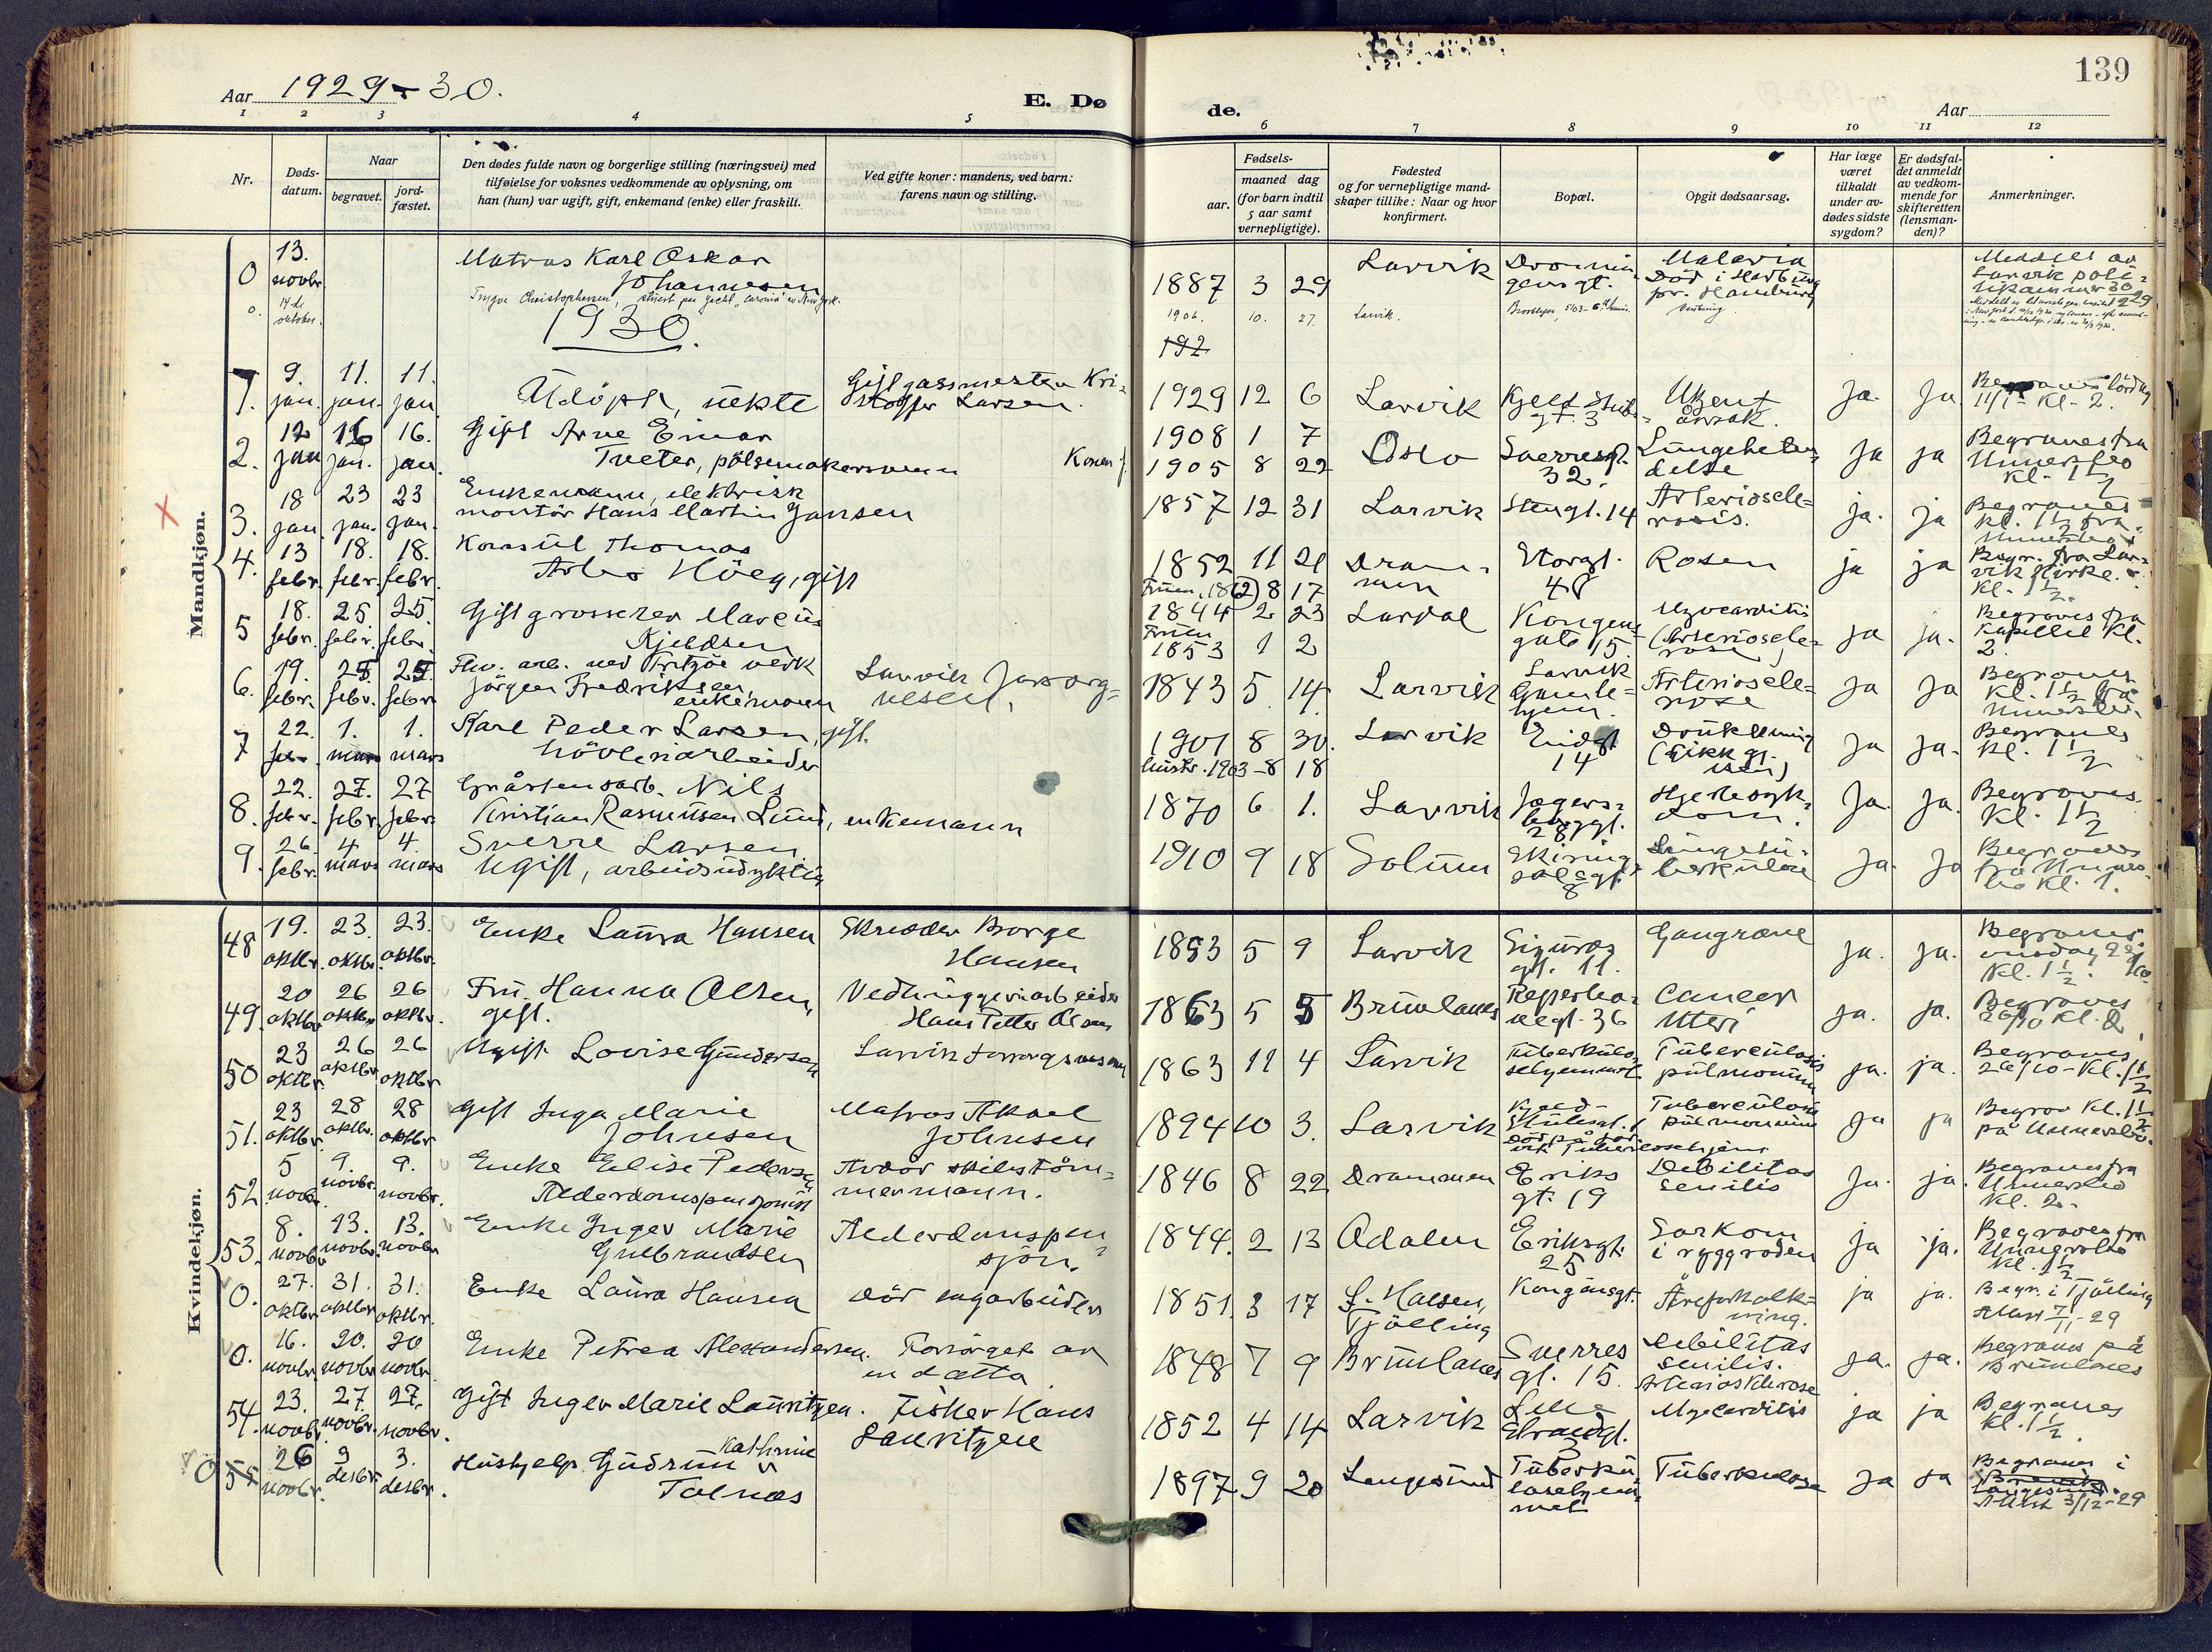 139
Aar 1929-30.
E. Døde.
Aar
1 2 3 4 5 6 7 8 9 10 11 12
Nr.
Dødsdatum.
Naar
begravet.
jordfæstet.
Den dødes fulde navn og borgerlige stilling (næringsvei) med
tilføielse for voksnes vedkommende av oplysning, om
han (hun) var ugift, gift, enkemand (enke) eller fraskilt.
Ved gifte koner: mandens, ved barn:
farens navn og stilling.
Fødsels-
aar.
maaned dag
(for barn indtil
5 aar samt
vernepligtige).
Fødested
og for vernepligtige mand-
skaper tillike: Naar og hvor
konfirmert.
Bopæl.
Opgit dødsaarsag.
Har læge
været
tilkaldt
under av-
dødes sidste
sygdom?
Er dødsfal-
det anmeldt
av vedkom-
mende for
skifteretten
(lensman-
den)?
Anmerkninger.
Mandkjøn.
0 13. novbr Matros Karl Oskar
Johannesen
1887 3 29 Larvik
Malaria
Død i Harburg
pr. Hamburg
0. 14de oktober. Yngve Christophersen,
1906. 10. 27. Larvik.
1930.
192
1. 9. jan. 11. jan. 11. jan Udöpt, uekte
Gift gassmester Kri-
stoffer Larsen.
1929 12 6 Larvik
Ukjent
årsak.
Ja. Ja
11/1- Kl. 2.
2. 12 jan 16 jan. 16. jan. Gift Arne Einar
Tveter, pölsemakersvenn
Konen f.
1908 1 7
1905 8 22 Oslo Sverresgt.
32.
Lungebeten-
delse
Ja ja Begraves fra
Kl. 1 1/2
3. 18 jan 23 jan. 23 jan. Enkemann, elektrisk
montör Hans Martin Jansen
1857 12 31 Larvik Stengt. 14 Arteriosele-
rosis.
ja. ja Begraves
kl. 1 1/2 fra
4. 13 febr. 18. febr. 18. febr. Konsul Thomas
Arbo Höeg, gift
1852 11 21
Fruen, 1862 8 17
Dram-
men Storgt.
48 Rosen
ja ja Begr. fra Lar-
vik Kirke.
Kl. 1 1/2.
5 18. febr. 25 febr. 25. febr. Gift grosserer Marcus
Kjeldsen
1844 2 23
Fruen
1853 1 2
Lardal Kongens
gate 15.
ja ja. Begraves fra
Kapellet Kl.
2.
6. 19. febr. 25. febr. 25. febr. Fhv. arb. ved Fritzöe verk
Jörgen Fredriksen,
enkemann
Larvik Forsorg-
vesen,
1843 5 14. Larvik Larvik
Gamle-
hjem. Arteriosele-
rose
Ja Ja Begraves
Kl. 1 1/2 fra
7 22. febr. 1. mars 1. mars Karl Peder Larsen, gift.
hövleriarbeider
1901 8 30.
hustr. 1903-8 18
Larvik
14
Drukkning
Ja Ja. Begraves
Kl. 1 1/2
8. 22. febr. 27. febr. 27 febr. Gråstensarb. Nils
Kristian Rasmussen Lund, enkemann
1870 6 1. Larvik Jegers-
borggt.
28 Hjertesyk-
dom.
Ja. Ja. Begraves
Kl. 1 1/2
9. 26 febr. 4 mars 4. mars Sverre Larsen
Ugift, arbeidsudyktig
1910 9 18 Solum Skirings
salsgt.
8 Lungetu-
berkulose
Ja. Ja Begraves
Kl. 1.
Kvindekjøn.
48 19. oktbr. 23. oktbr. 23. oktbr. Enke Laura Hansen Skredder Borge
Hansen
1853 5 9 Larvik Sigurds
gt. 11. Gangræne
ja. ja. Begraves
onsdag 23/10
kl. 1 1/2.
49. 20 oktbr 26 oktbr 26 oktbr. Fru Hanna Olsen
gift.
Vedhuggeriarbeider
Hans Petter Olsen
1863 5 5 Brunlanes Reperba-
negt. 36 Cancer
Uteri
ja. ja. Begraves
26/10 Kl. 2
50 23 oktbr 26 oktbr 26 oktbr Ugift Lovise Gundersen Larvik forsorgsvesen
1863 11 4 Larvik Tuberkulo-
sehjemmet Tuberculosis
pulmonum
ja. ja. Begraves
26/10-Kl. 1 1/2
51. 23 oktbr. 28 oktbr. 28 oktbr Gift Inga Marie
Johnsen
Matros Aksel
Johnsen
1894 10 3. Larvik
Tuberculosis
pulmonum
Ja ja Begrav Kl. 1 1/2
52 5 novbr. 9. novbr. 9. novbr. Enke Elise Pedersen
Alderdomspensjonist
Avdör skibstöm-
mermann.
1846 8 22 Drammen Eriks
gt. 19 Debilitas
senilis
Ja. ja. Begraves fra
Kl. 2.
53. 8. novbr 13. novbr. 13. novbr Enke Inger Marie
Gulbrandsen
Alderdomspen-
sjon.
1844. 2 13 Ådalen Eriksgt.
25 Sarkom
i ryggraden
Ja ja. Begraves fra
Kl. 1 1/2
0. 27. oktbr. 31. oktbr 31. oktbr. Enke Laura Hansen Död sagarbeider
1851 3 17 L. Halsen,
Tjölling Kongensgt. Åreforkalk-
ning.
ja ja. Begr. i Tjölling
Attest 7/11-29
0. 16. novbr. 20. novbr 20 novbr. Enke Petrea Alexandersen. Forsörget av
en datter
1848 7 9 Brunlanes Sverres
gt. 15. Debilitas
senilis.
Arteriosklerose
ja. ja. Begraves på
Brunlanes
54. 23. novbr. 27. novbr. 27. novbr. Gift Inger Marie Lauritzen. Fisker Hans
Lauritzen
1852 4 14 Larvik Lille
Strandgt.
3 Myocarditis
ja ja Begraves
Kl. 1 1/2.
0 55 26 novbr. 3 desbr. 3. desbr. Hushjelp Gudrun Kathrine
Talnæs
1897 9 20 Langesund Tuberku-
losehjem-
met Tuberkulose
Ja Ja Begraves i
Brevik
Langesund.
Attest 3/12-29